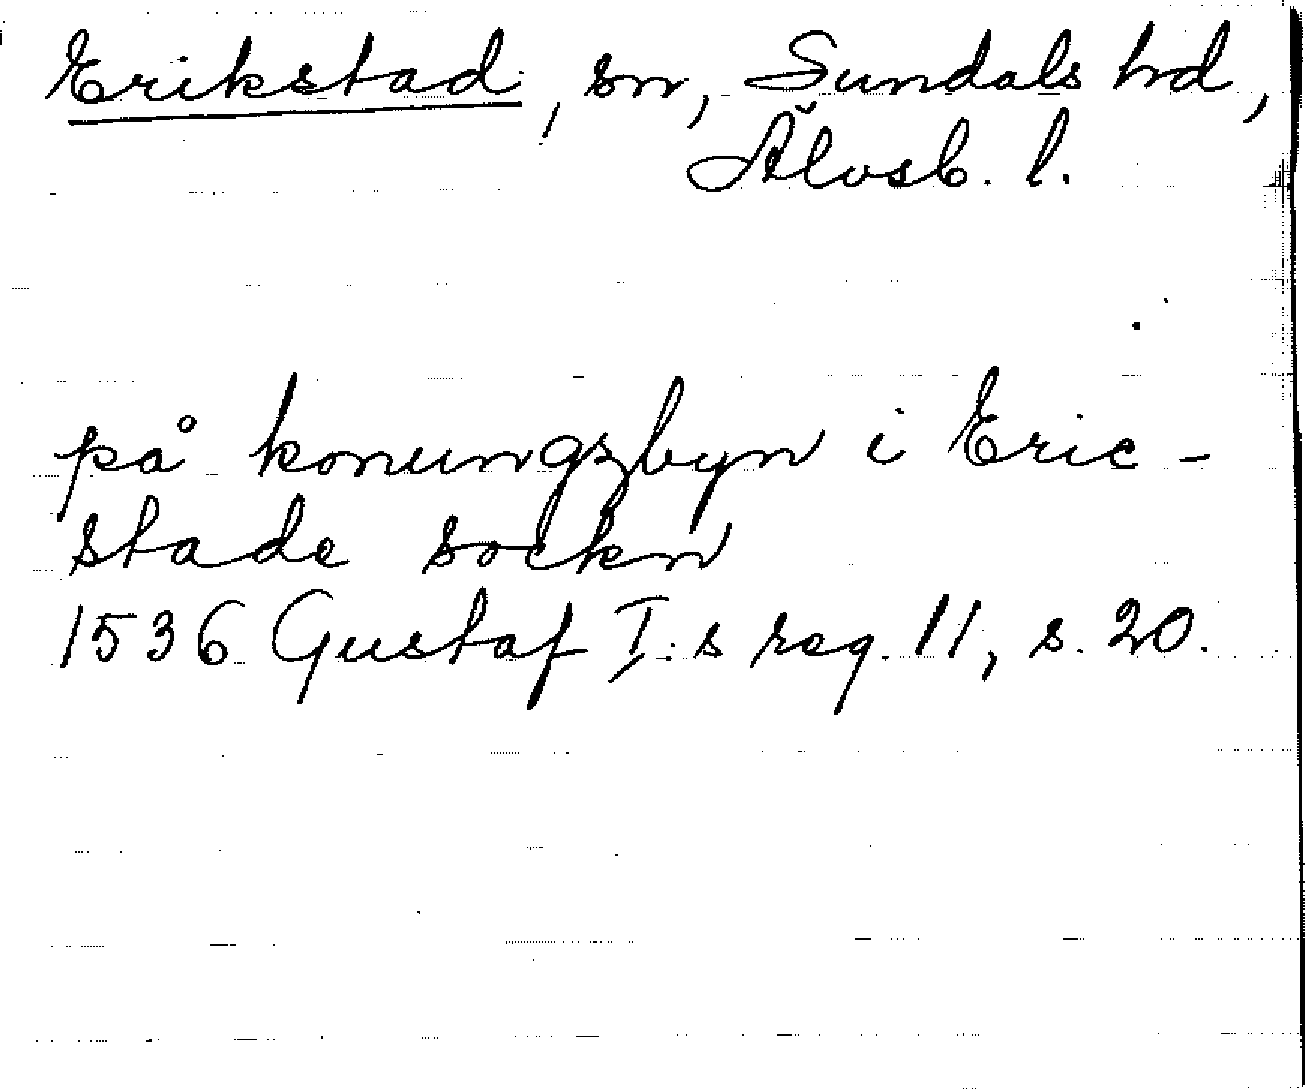 Erikstad, sn, Sundals hd,
Älvsb. l.
på konungzbyn i Eric-
stade sockn
1536 Gustaf I:s reg. 11, s. 20.